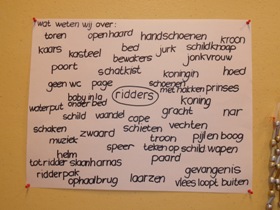 wat weten wij over:
toren open haard handschoenen kroon
kaars kasteel bed jurk schildknaap
bewakers jonkvrouw
poort schatkist koningin hoed
geen wc page schoenen
met hakken prinses
baby in la ridders
onder bed koning
waterput gracht nar
schild vaandel cape
schaken zwaard schieten vechten
muziek troon pijl en boog
speer teken op schild wapen
helm paard
tot ridder slaan harnas gevangenis
ridderpak
ophaalbrug laarzen vlees loopt buiten